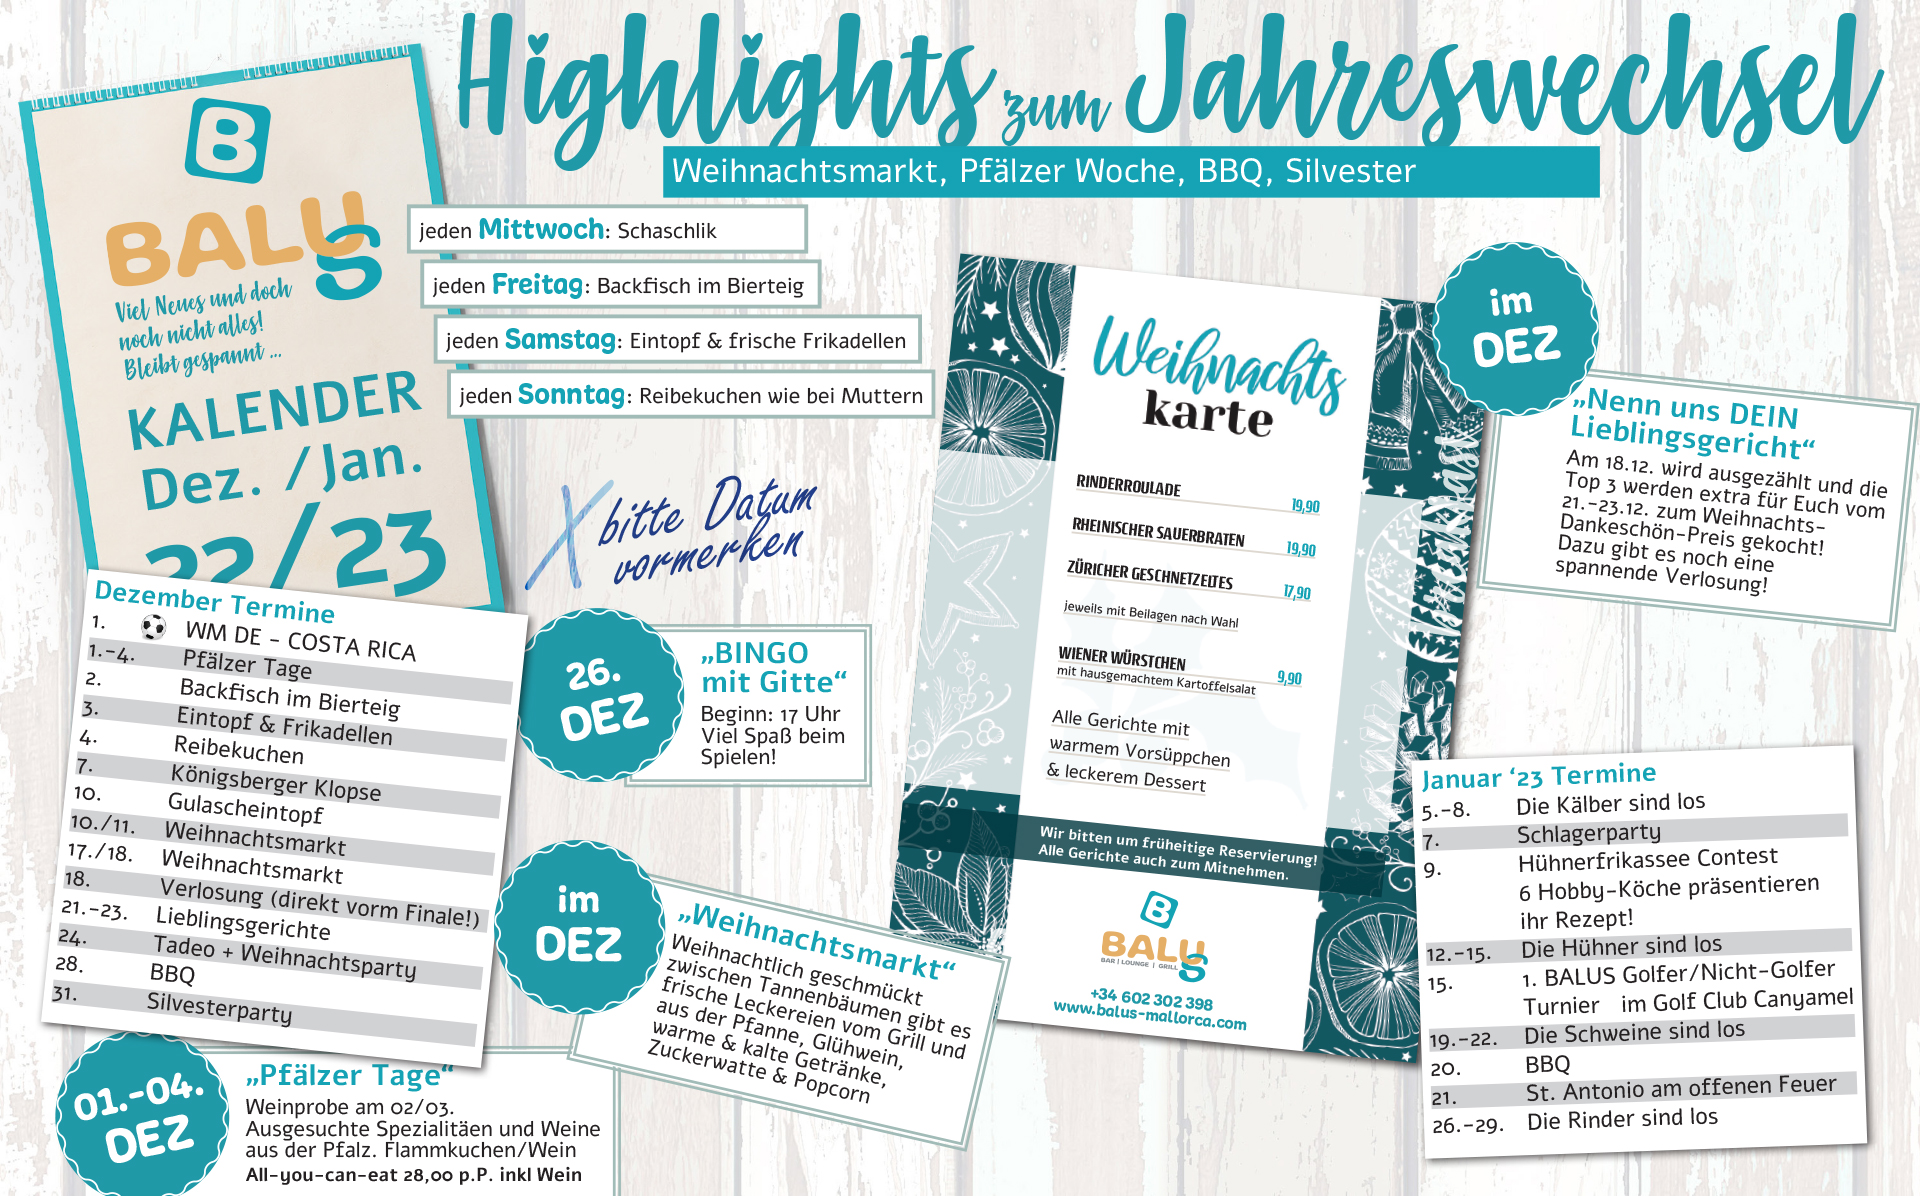 Highlights zum Jahreswechsel
Weihnachtsmarkt, Pfälzer Woche, BBQ, Silvester
B
BALUS
Viel Neues und doch
noch nicht alles!
Bleibt gespannt ...
KALENDER
Dez. / Jan.
22/23
jeden Mittwoch: Schaschlik
jeden Freitag: Backfisch im Bierteig
jeden Samstag: Eintopf & frische Frikadellen
jeden Sonntag: Reibekuchen wie bei Muttern
X bitte Datum
vormerken
Dezember Termine
1. WM DE - COSTA RICA
1.-4. Pfälzer Tage
2. Backfisch im Bierteig
3. Eintopf & Frikadellen
4. Reibekuchen
7. Königsberger Klopse
10. Gulascheintopf
10./11. Weihnachtsmarkt
17./18. Weihnachtsmarkt
18. Verlosung (direkt vorm Finale!)
21.-23. Lieblingsgerichte
24. Tadeo + Weihnachtsparty
28. BBQ
31. Silvesterparty
26.
DEZ
„BINGO
mit Gitte“
Beginn: 17 Uhr
Viel Spaß beim
Spielen!
im
DEZ
„Weihnachtsmarkt“
Weihnachtlich geschmückt
zwischen Tannenbäumen gibt es
frische Leckereien vom Grill und
aus der Pfanne, Glühwein,
warme & kalte Getränke,
Zuckerwatte & Popcorn
01.-04.
DEZ
„Pfälzer Tage“
Weinprobe am 02/03.
Ausgesuchte Spezialitäen und Weine
aus der Pfalz. Flammkuchen/Wein
All-you-can-eat 28,00 p.P. inkl Wein
Weihnachts
karte
RINDERROULADE 19,90
RHEINISCHER SAUERBRATEN 19,90
ZÜRICHER GESCHNETZELTES 17,90
jeweils mit Beilagen nach Wahl
WIENER WÜRSTCHEN 9,90
mit hausgemachtem Kartoffelsalat
Alle Gerichte mit
warmem Vorsüppchen
& leckerem Dessert
Wir bitten um früheitige Reservierung!
Alle Gerichte auch zum Mitnehmen.
B
BALUS
BAR | LOUNGE | GRILL
+34 602 302 398
www.balus-mallorca.com
im
DEZ
„Nenn uns DEIN
Lieblingsgericht“
Am 18.12. wird ausgezählt und die
Top 3 werden extra für Euch vom
21.-23.12. zum Weihnachts-
Dankeschön-Preis gekocht!
Dazu gibt es noch eine
spannende Verlosung!
Januar ‘23 Termine
5.-8. Die Kälber sind los
7. Schlagerparty
9. Hühnerfrikassee Contest
6 Hobby-Köche präsentieren
ihr Rezept!
12.-15. Die Hühner sind los
15. 1. BALUS Golfer/Nicht-Golfer
Turnier im Golf Club Canyamel
19.-22. Die Schweine sind los
20. BBQ
21. St. Antonio am offenen Feuer
26.-29. Die Rinder sind los